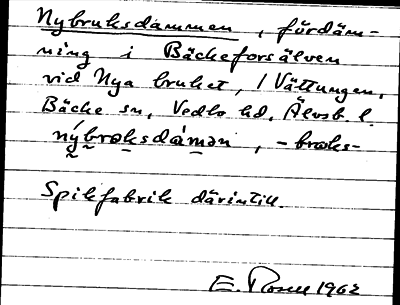 Nybruksdammen, fördäm-
ning i Bäckeforsälven
vid Nya bruket, / Vättungen,
Bäcke sn, Vedbo hd, Älvsb l.
nýbroksdámən, -broks-
Spikfabrik därintill.
E. 1962